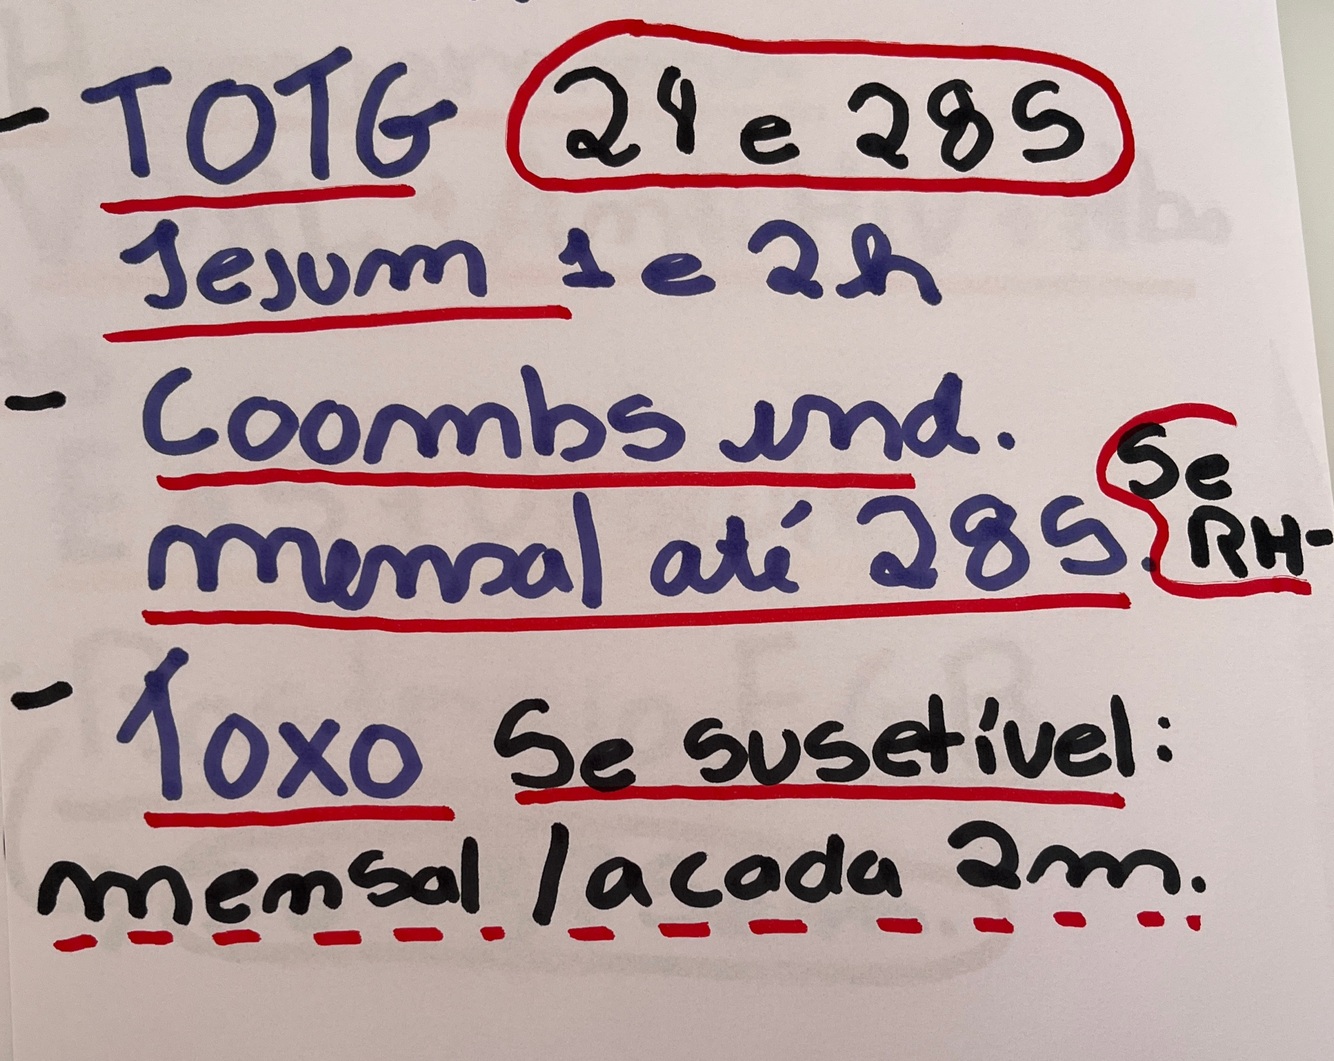 - TOTG 24 e 28S
Jejum 1 e 2h
- Coombs ind.
mensal até 28S. Se RH-
- Toxo Se susetível:
mensal / acada 2m.